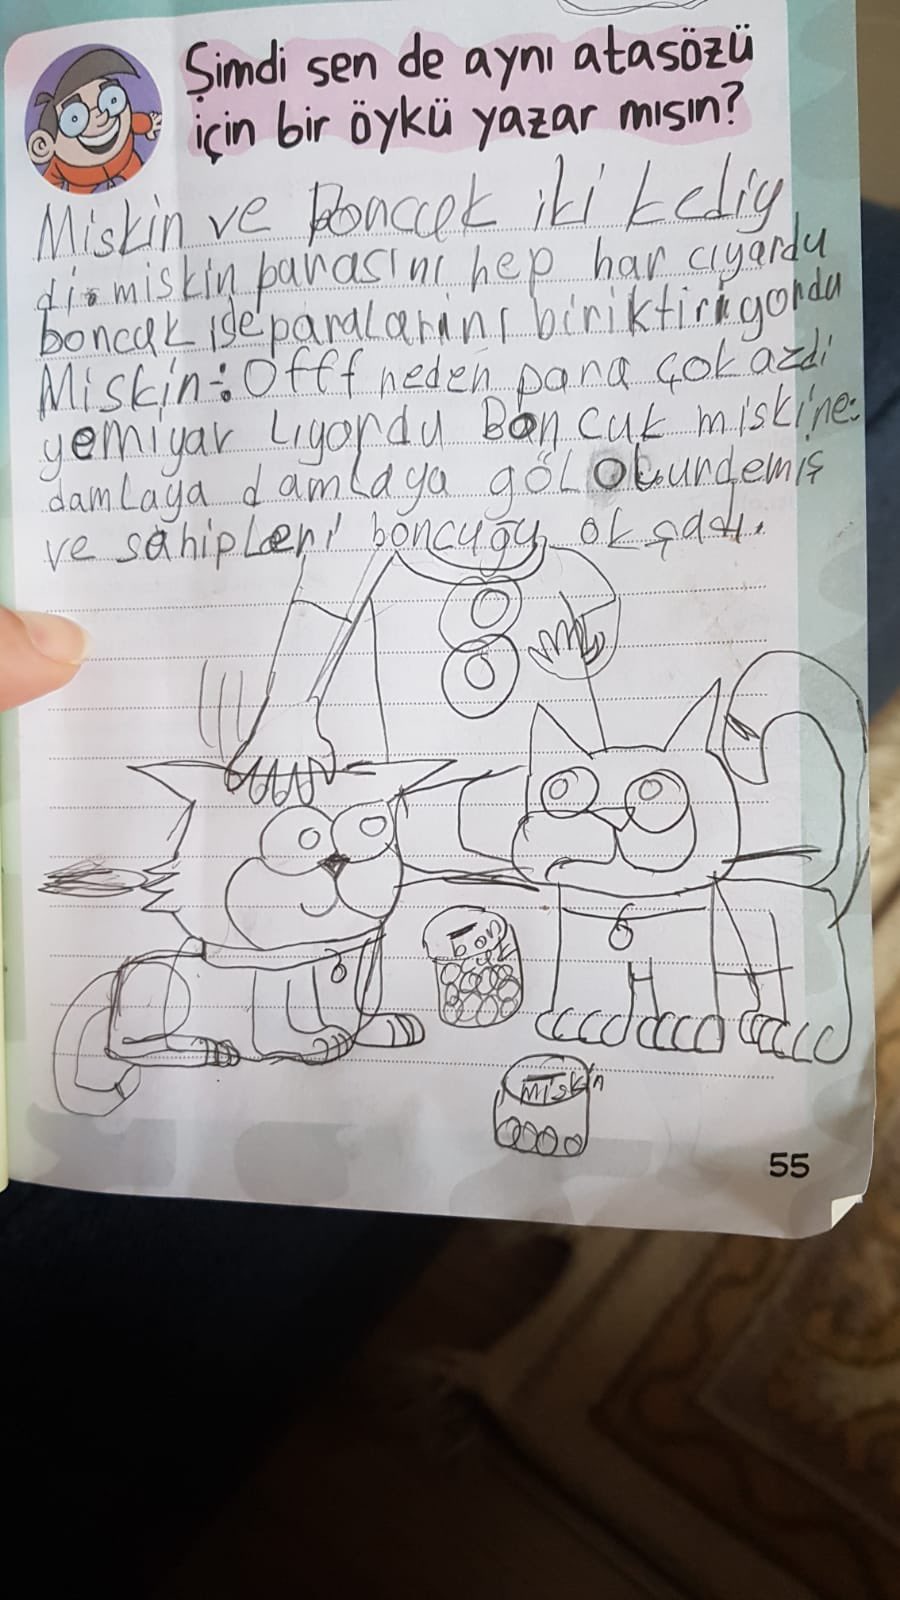 Şimdi sen de aynı atasözü
için bir öykü yazar mısın?
Miskin ve boncek iki kediy
di. miskin parasını hep har cıyardu
boncak ise paralarını biriktiriyordu
Miskin: Offf neden para çok azdi
yemiyar Lıyordu Boncuk miskine:
damlaya damlaya göl olurdemiş
ve sahipleri boncuğu okşadı.
bonk
miskin
55